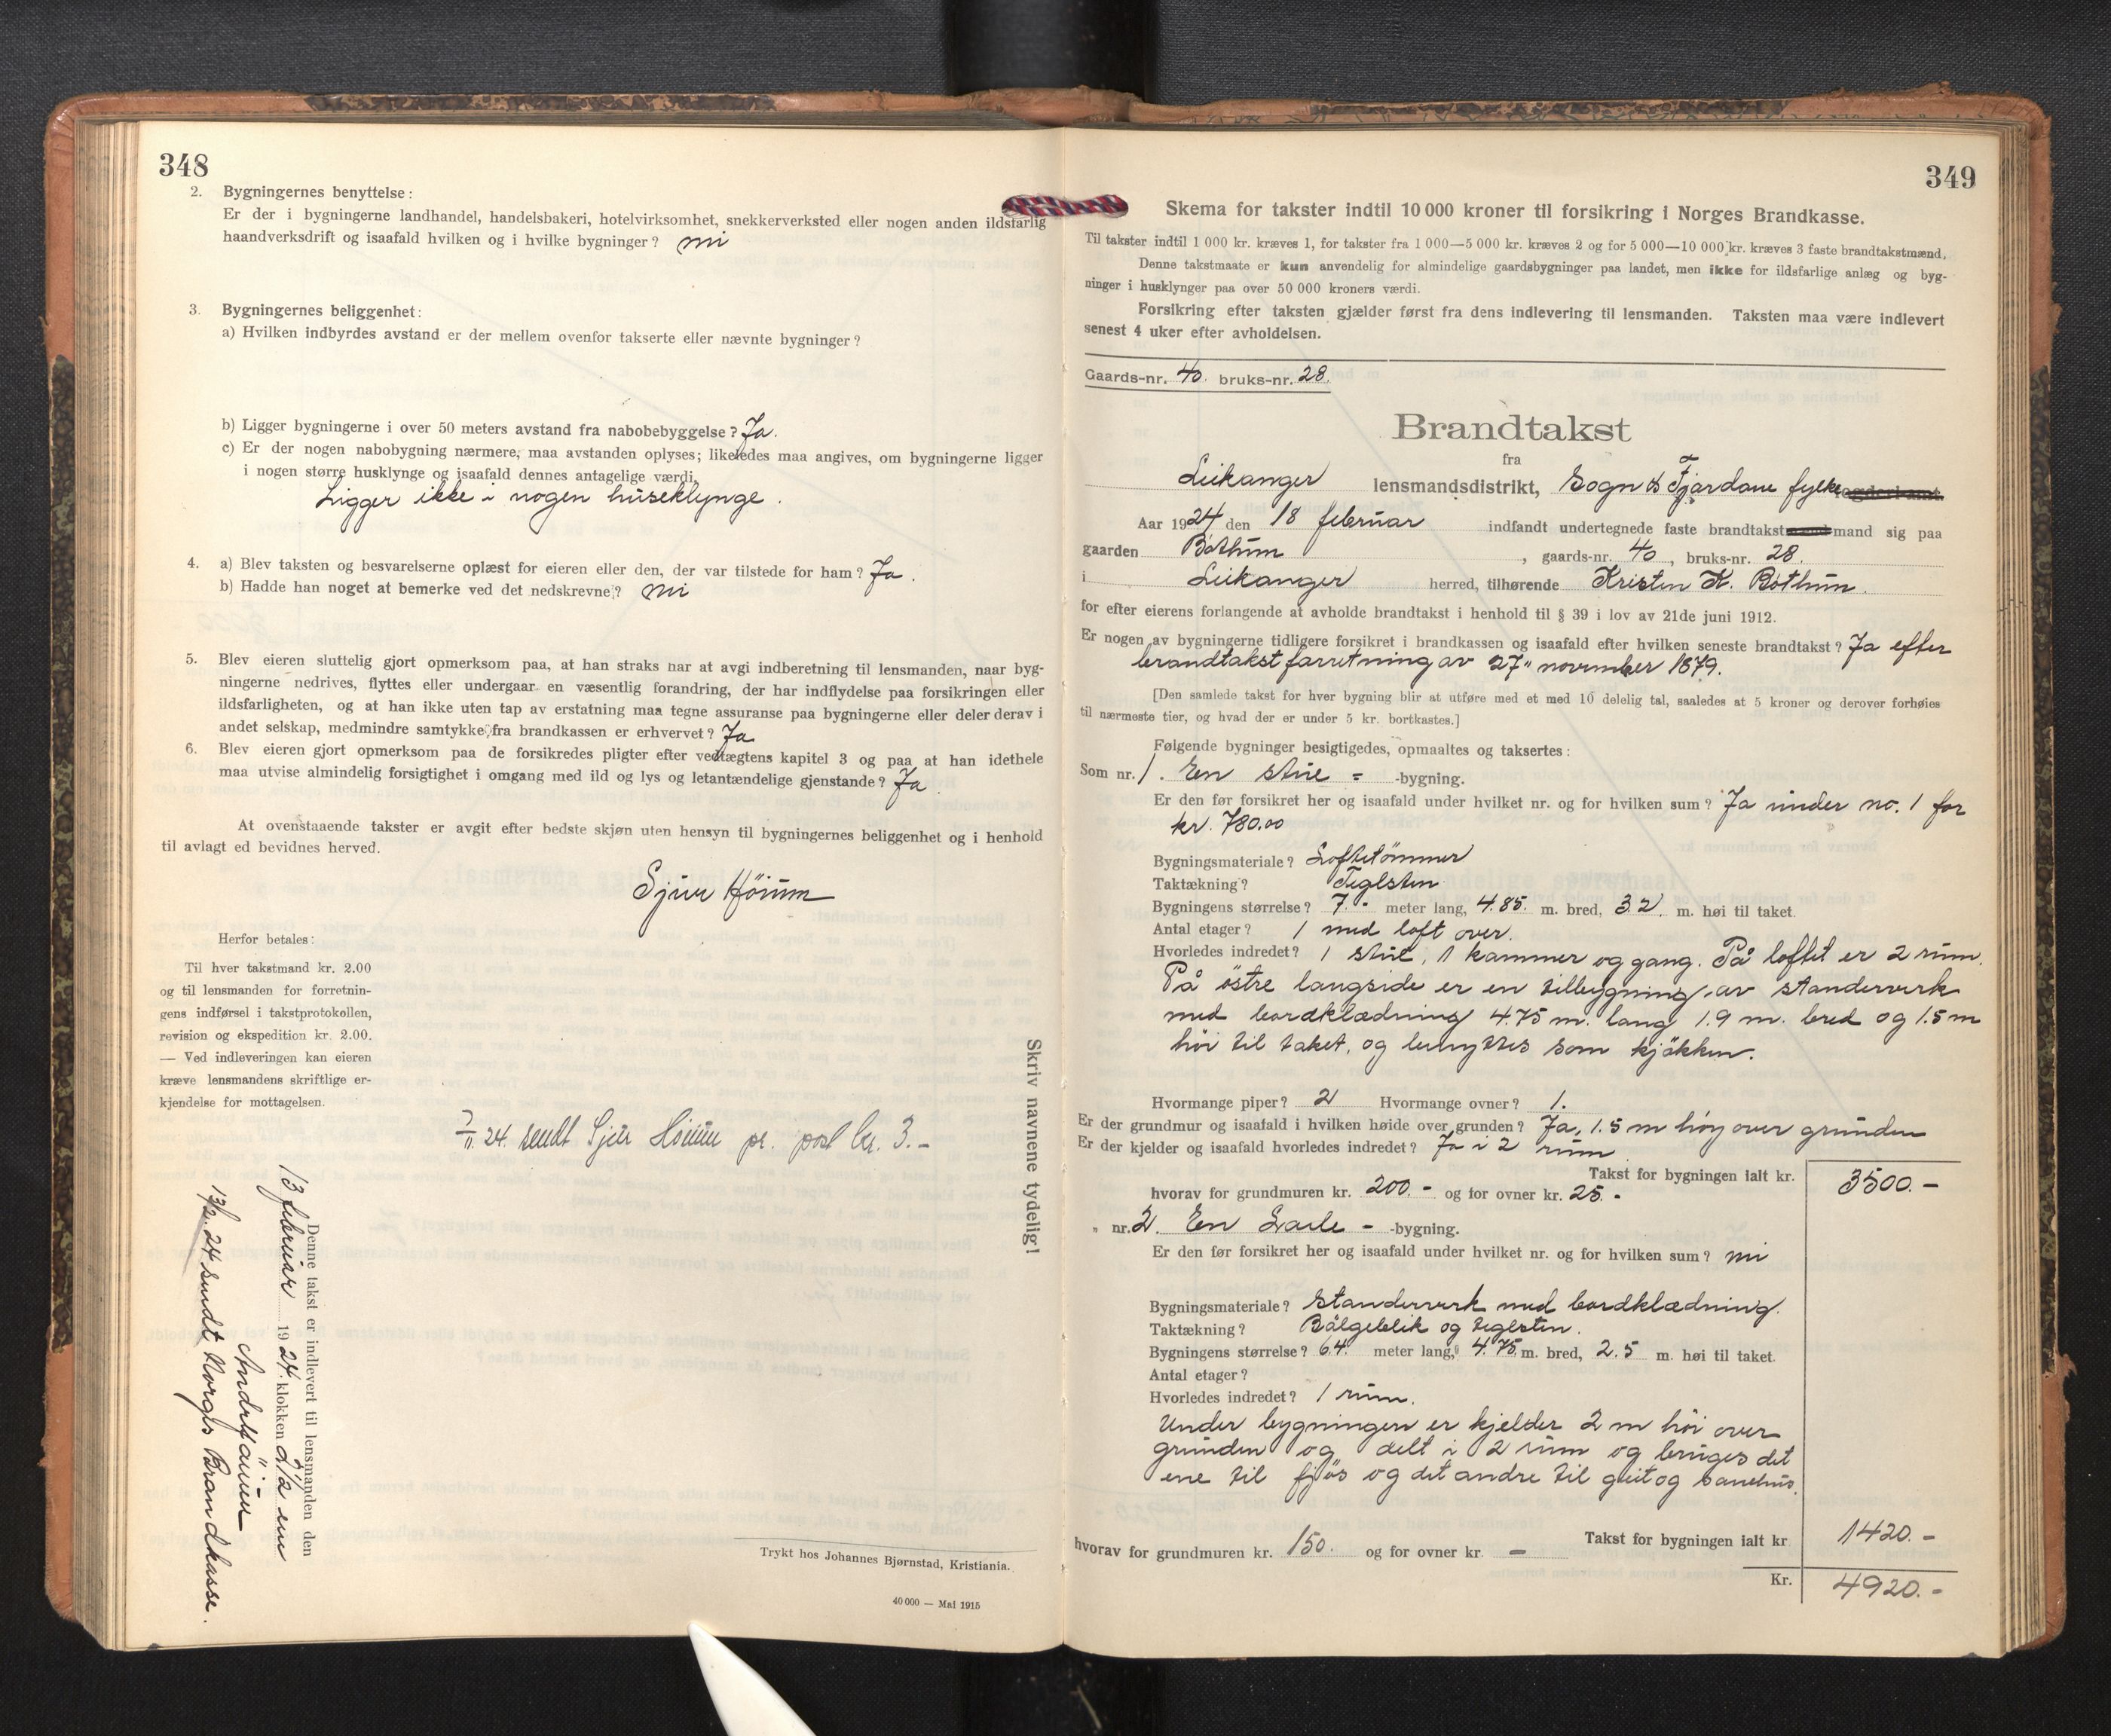 348
2. Bygningernes benyttelse:
Er der i bygningerne landhandel, handelsbakeri, hotelvirksomhet, snekkerverksted eller nogen anden ildsfarlig
haandverksdrift og isaafald hvilken og i hvilke bygninger? nei
3. Bygningernes beliggenhet:
a) Hvilken indbyrdes avstand er der mellem ovenfor takserte eller nævnte bygninger?
b) Ligger bygningerne i over 50 meters avstand fra nabobebyggelse? Ja.
c) Er der nogen nabobygning nærmere, maa avstanden oplyses; likeledes maa angives, om bygningerne ligger
i nogen større husklynge og isaafald dennes antagelige værdi.
Ligger ikke i nogen huseklynge.
4. a) Blev taksten og besvarelserne oplæst for eieren eller den, der var tilstede for ham? Ja.
b) Hadde han noget at bemerke ved det nedskrevne? nei
5. Blev eieren sluttelig gjort opmerksom paa, at han straks har at avgi indberetning til lensmanden, naar byg-
ningerne nedrives, flyttes eller undergaar en væsentlig forandring, der har indflydelse paa forsikringen eller
ildsfarligheten, og at han ikke uten tap av erstatning maa tegne assuranse paa bygningerne eller deler derav i
andet selskap, medmindre samtykke fra brandkassen er erhvervet? Ja
6. Blev eieren gjort opmerksom paa de forsikredes pligter efter vedtægtens kapitel 3 og paa at han idethele
maa utvise almindelig forsigtighet i omgang med ild og lys og letantændelige gjenstande? Ja
At ovenstaaende takster er avgit efter bedste skjøn uten hensyn til bygningernes beliggenhet og i henhold
til avlagt ed bevidnes herved.
Sjur Höium
Herfor betales:
Til hver takstmand kr. 2.00
og til lensmanden for forretnin-
gens indførsel i takstprotokollen,
revision og ekspedition kr 2.00.
— Ved indleveringen kan eieren
kræve lensmandens skriftlige er-
kjendelse for mottagelsen.
24 sendt Sjur Höium pr. post kr. 3.-
Skriv navnene tydelig!
Denne takst er indlevert til lensmanden den
13 februar 1924 klokken em
13/2 24 sendt Norges Brandkasse.
Trykt hos Johannes Bjørnstad, Kristiania.
40 000 — Mai 1915
349
Skema for takster indtil 10 000 kroner til forsikring i Norges Brandkasse.
Til takster indtil 1 000 kr. kræves 1, for takster fra 1 000—5 000 kr. kræves 2 og for 5 000—10 000 kr. kræves 3 faste brandtakstmænd.
Denne takstmaate er kun anvendelig for almindelige gaardsbygninger paa landet, men ikke for ildsfarlige anlæg og byg-
ninger i husklynger paa over 50 000 kroners værdi.
Forsikring efter taksten gjælder først fra dens indlevering til lensmanden. Taksten maa være indlevert
senest 4 uker efter avholdelsen.
Gaards-nr. 40. bruks-nr. 28.
Brandtakst
fra
Leikanger lensmandsdistrikt, Sogn & Fjordane fylke
Aar 1924 den 18 februar indfandt undertegnede faste brandtakstmand sig paa
gaarden Bothum, gaards-nr. 40, bruks-nr. 28
i Leikanger herred, tilhørende Kristen K. Bothum.
for efter eierens forlangende at avholde brandtakst i henhold til § 39 i lov av 21de juni 1912.
Er nogen av bygningerne tidligere forsikret i brandkassen og isaafald efter hvilken seneste brandtakst? Ja efter
brandtakstforretning av 27" november 1879.
[Den samlede takst for hver bygning blir at utføre med et med 10 delelig tal, saaledes at 5 kroner og derover forhøies
til nærmeste tier, og hvad der er under 5 kr. bortkastes.]
Følgende bygninger besigtigedes, opmaaltes og taksertes:
Som nr. 1. En stue = -bygning.
Er den før forsikret her og isaafald under hvilket nr. og for hvilken sum? Ja under no. 1 for
kr. 780.00
Bygningsmateriale? Loftetömmer
Taktækning? Teglsten
Bygningens størrelse? 7.- meter lang, 4.85. m. bred, 3.2. m. høi til taket.
Antal etager? 1 med loft over.
Hvorledes indredet? 1 stue, 1 kammer og gang. På loftet er 2 rum.
På östre langside er en tilbygning av standerverk
med bordklædning 4.75 m. lang 1.9 m. bred og 1.5 m
höi til taket, og benyttes som kjökken.
Hvormange piper? 2 Hvormange ovner? 1.
Er der grundmur og isaafald i hvilken høide over grunden? Ja, 1.5 m höy over grunden
Er der kjelder og isaafald hvorledes indredet? Ja i 2 rum
Takst for bygningen ialt kr. 3500.-
hvorav for grundmuren kr. 200.- og for ovner kr. 25.-
" nr. 2. En Lade - -bygning.
Er den før forsikret her og isaafald under hvilket nr. og for hvilken sum? nei
Bygningsmateriale? Standerverk med bordklædning.
Taktækning? Bölgeblik og teglsten.
Bygningens størrelse? 6.4. meter lang, 4.75. m. bred, 2.5 m. høi til taket.
Antal etager?
Hvorledes indredet? 1 rum.
Under bygningen er kjelder 2 m höi over
grunden og delt i 2 rum og bruges det
ene til fjös og det andre til geit og sauehus.
Takst for bygningen ialt kr 1420.-
hvorav for grundmuren kr. 150. og for ovner kr -
Kr. 4920.-